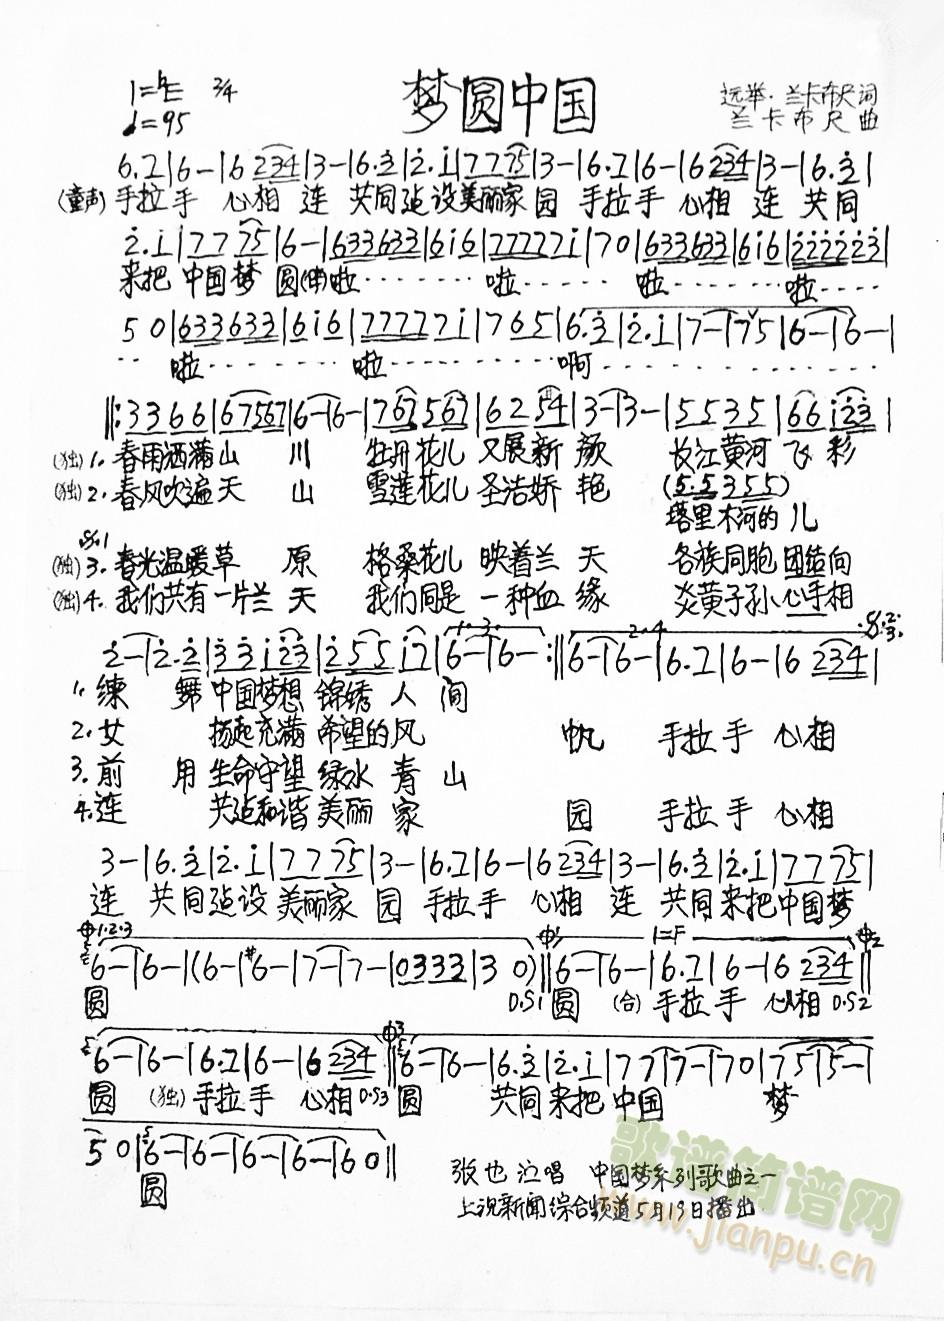 1=♭E 2/4 梦圆中国 远举·兰卡布尺词
♩=95 兰卡布尺曲
6.7|6-|6 234|3-|6.3|2.1|7 7 75|3-|6.7|6-|6 234|3-|6.3|
(童声) 手拉手 心相 连 共同造设美丽家 园 手拉手 心相 连 共同
2.1|7 7 75|6-|633633|616|777771|70|633633|616|2222223|
来把 中国梦 圆 啦········ 啦····· 啦····· 啦·····
50|633633|616|777771|765|6.3|2.1|7-|7 5|6-|6-|
·· 啦········ 啦········· 啊···········
‖:3366|67567|6-|6-|767567|6254|3-|3-|5535|66123|
(独)1.春雨洒满山 川 牡丹花儿 又展新 颜 长江黄河 飞 彩
(独)2.春风吹遍天 山 雪莲花儿 圣洁娇 艳 (5.5355)
塔里木河的 儿
(独)3.春光温暖草 原 格桑花儿 映着兰 天 各族同胞 团结向
(独)4.我们共有一片兰 天 我们同是 一种血 缘 炎黄子孙 心手相
2-|2.2|33123|25517|6-|6-:‖6-|6-|6.7|6-|6 234|
1.练 舞 中国梦想 锦绣 人 间
2.女 扬起充满 希望的风 帆 手拉手 心相
3.前 用 生命守望 绿水 青 山
4.连 共造和谐 美丽 家 园 手拉手 心相
3-|6.3|2.1|7 7 75|3-|6.7|6-|6 234|3-|6.3|2.1|7 7 75|
连 共同造设 美丽家 园 手拉手 心相 连 共同来把中国梦
1·2·3 1=F
6-|6-|(6-|#6-|7-|7-|0333|30)‖6-|6-|6.7|6-|6 234‖
圆 D.S1 圆 (合) 手拉手 心相 D.S2
6-|6-|6.7|6-|6 234‖6-|6-|6.3|2.1|77|7-|70|75|5-|
圆 (独) 手拉手 心相 D.S3 圆 共同来把中国 梦
50|6-|6-|6-|6-|60‖
圆
张也 泣唱 中国梦系列歌曲之一
上视新闻综合频道5月19日播出
歌谱简谱网
www.jianpu.cn